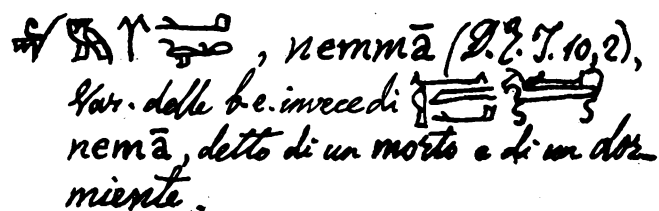 , nemmā (D. Z. T. 10, 2),
Var. della b. e. invece di
nemā, detto di un morto e di un dor-
miente.